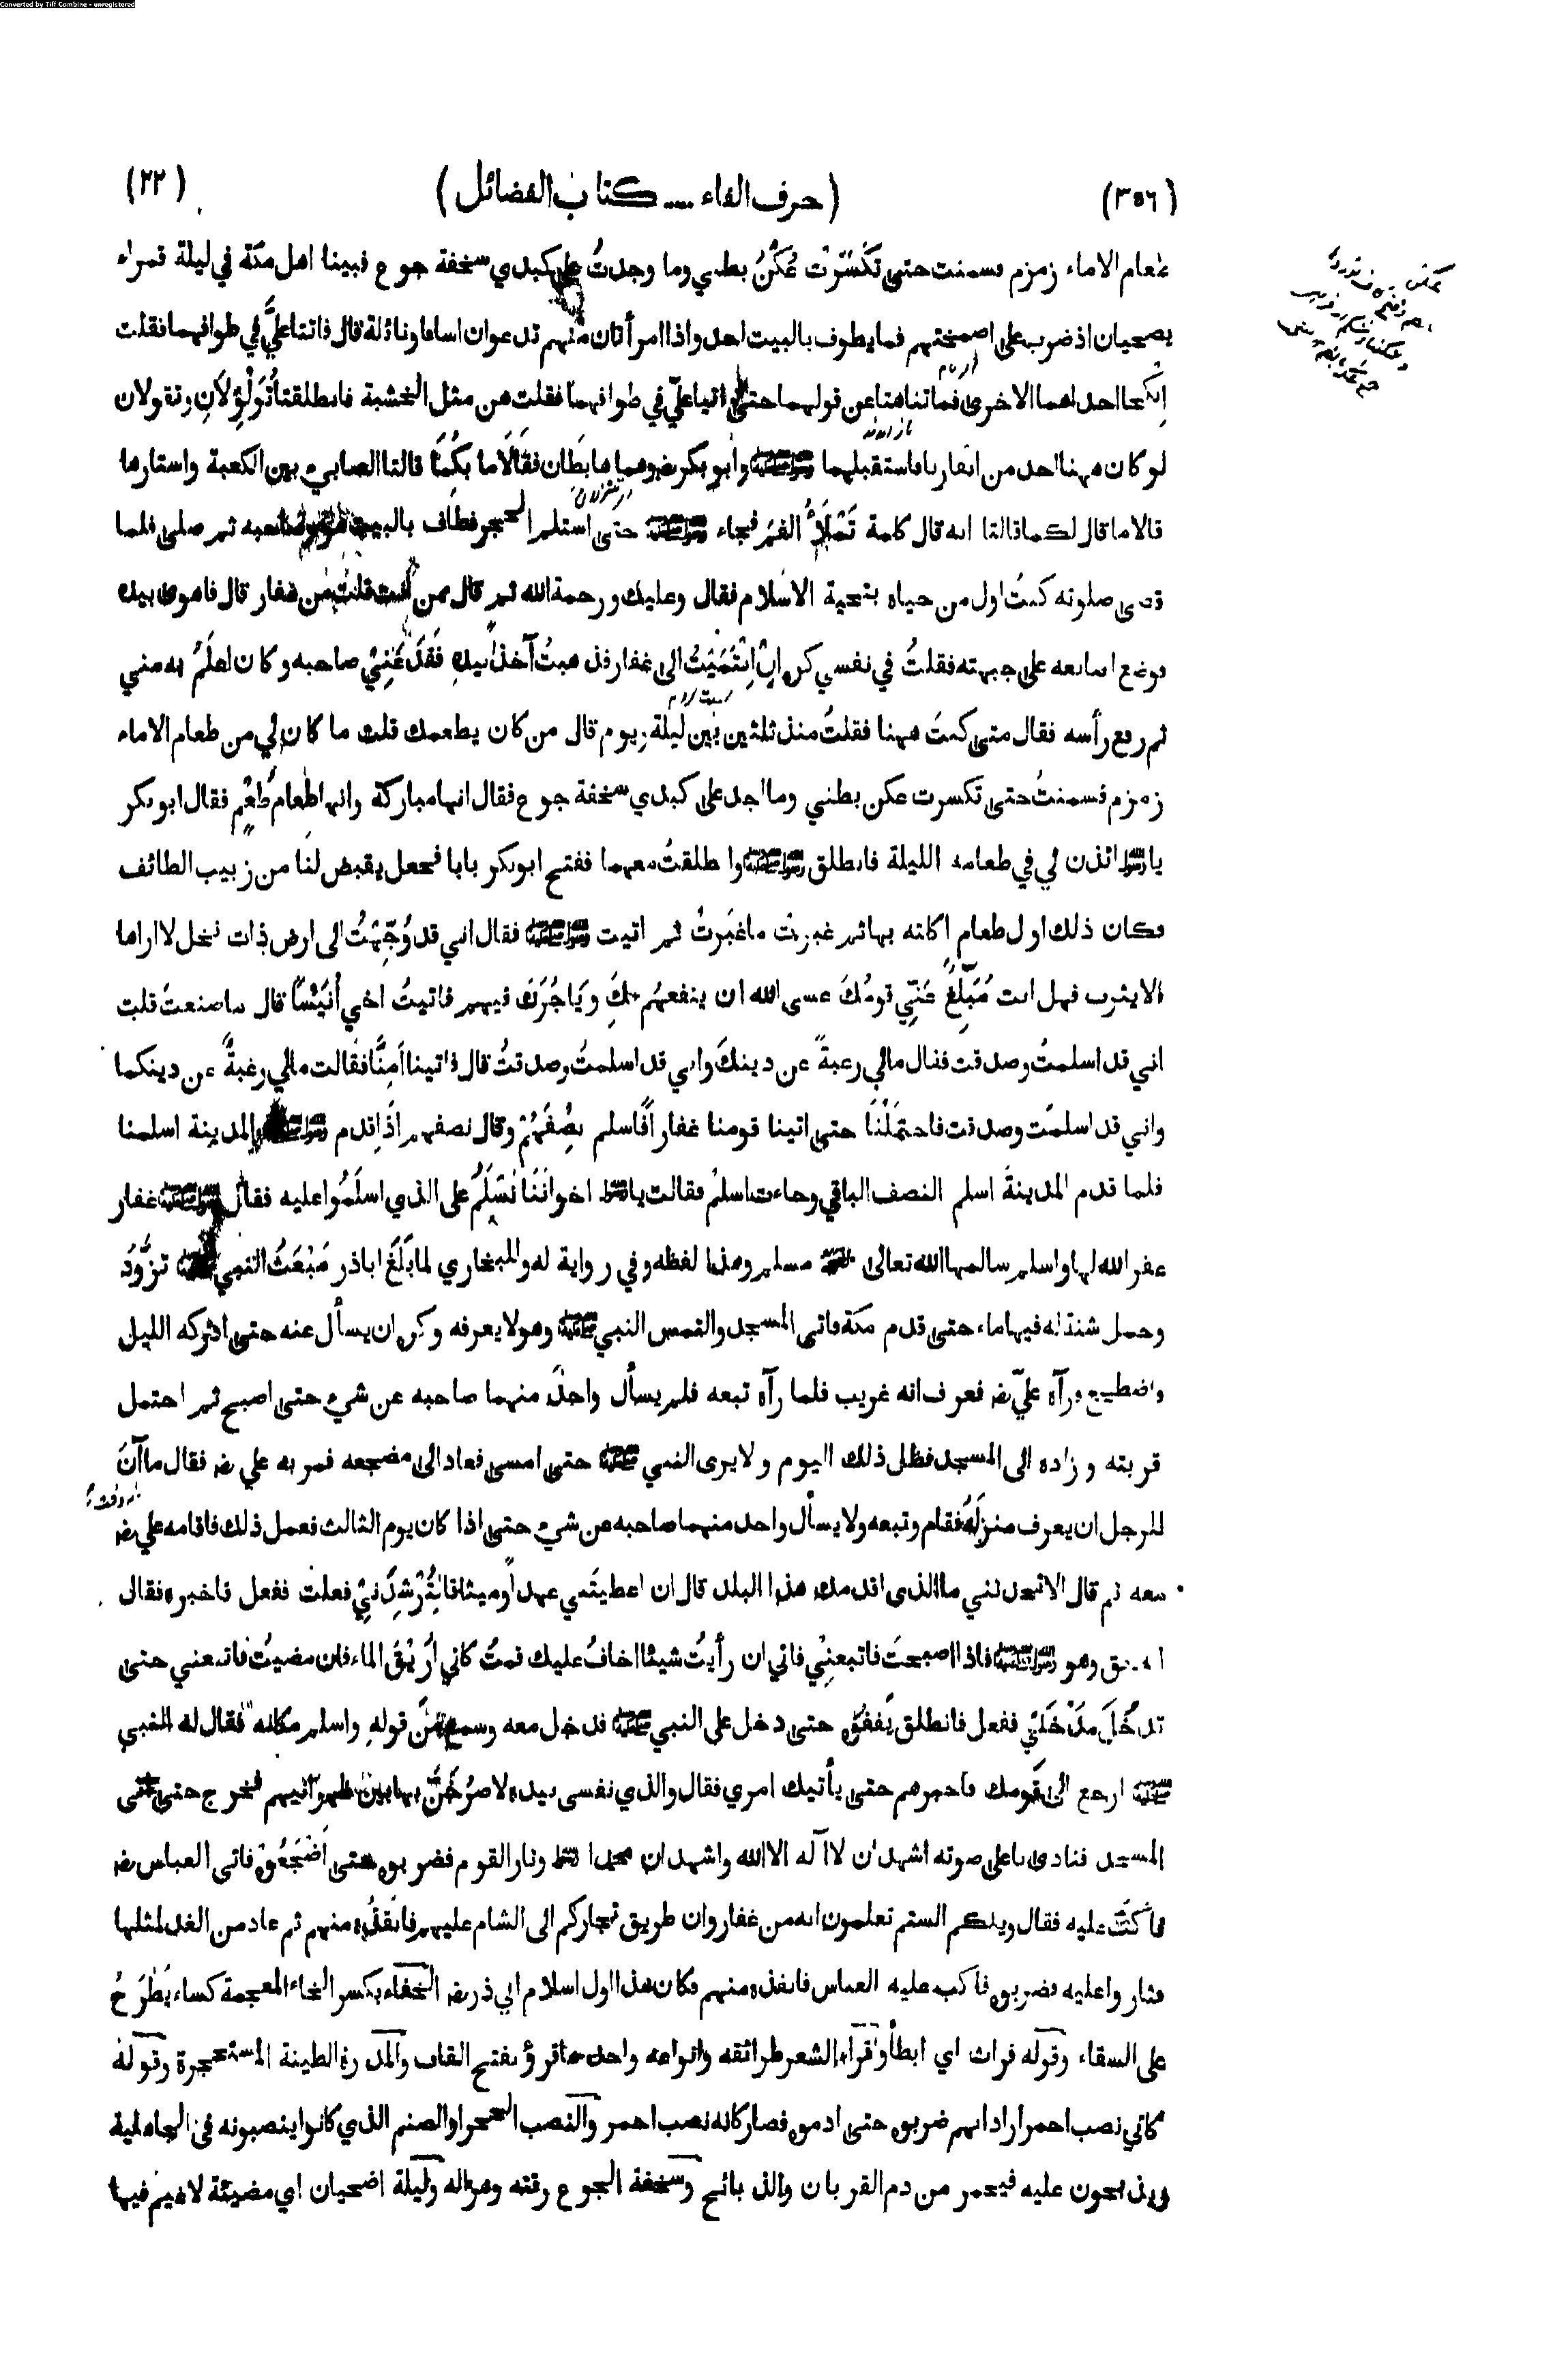 Converted by Tiff Combine - unregistered
(٣٥٦) (حرف الفاء .... كتاب الفضائل) (٢٢)
طعام الاماء زمزم فسمنت حتى تكسّرتْ عُكَنُ بطني وما وجدتُ على كبدي سخفة جوع فبينا اهل مكة في ليلة قمراء
اضحيان اذ ضرب على اصمختهم فما يطوف بالبيت احد واذا امرأتان منهم تدعوان اسافا ونائلة قال فاتتا عليَّ في طوافهما فقلت
اِنكحا احدٰهما الاخرى فماتناهتا عن قولهما حتى اتيا عليّ في طوافهما فقلت هن مثل الخشبة فانطلقتا تُوَلْوِلَانِ وتقولان
لو كان ههنا احد من انفارنا فاستقبلهما رسول الله صلى الله عليه وسلم وابو بكر رض وهما هابطان فقَالَا ما بكُمَا قالتا الصابيء بين الكعبة واستارها
قالا ما قال لكما قالتا انه قال كلمة تَمْلَأُ الفم فجاء رسول الله صلى الله عليه وسلم حتى استلم الحجر فطاف بالبيت هو وصاحبه ثم صلى فلما
قضى صلوته كنتُ اول من حياه بتحية الاسلام فقال وعليك ورحمة الله ثم قال ممن انت قلتُ من غفار قال فاهوى بيده
فوضع اصابعه على جبهته فقلتُ في نفسي كره انِ انْتَمَيْتُ الى غفار فذهبتُ آخذ بيدهِ فَقَدَعَنِيْ صاحبه وكان اعلمَ به مني
ثم رفع رأسه فقال متى كنتَ ههنا فقلتُ منذ ثلثين بين ليلة ويوم قال من كان يطعمك قلت ما كان لي من طعام الاماء
زمزم فسمنتُ حتى تكسرت عكن بطني وما اجد على كبدي سخفة جوع فقال انها مباركة وانها طعام طُعْمٍ فقال ابو بكر
يا رسول الله ائذن لي في طعامه الليلة فانطلق رسول الله صلى الله عليه وسلم وانطلقتُ معهما ففتح ابوبكر بابا فجعل يقبض لنا من زبيب الطائف
فكان ذلك اول طعام اكلته بها ثم غبرتُ ما غبَرتُ ثم اتيت رسول الله صلى الله عليه وسلم فقال اني قد وُجِّهَتْ الى ارض ذات نخل لا اراها
الا يثرب فهل انت مُبَلِّغٌ عَنّي قومَكَ عسى الله ان ينفعهُم بكَ ويَاجُرَكَ فيهم فاتيتُ اخي أنَيْسًا قال ما صنعتَ قلت
اني قد اسلمتُ وصدقت فقال مالي رغبةٌ عن دينكَ واني قد اسلمتُ وصدقتُ قال فاتينا اُمنَّا فقالت مالي رغبةٌ عن دينكما
واني قد اسلمت وصدقت فاحتمَلْنَا حتى اتينا قومنا غفارًا فاسلم نِصْفُهُمْ وقال نصفهم اذَا قدم رسول الله صلى الله عليه وسلم المدينة اسلمنا
فلما قدم المدينةَ اسلم النصف الباقي وجاءت اسلمُ فقالت يا رسول الله اخوانُنَا نُسْلِمُ على الذي اسلَمُوا عليه فقال رسول الله صلى الله عليه وسلم غفار
غفر الله لها واسلم سالمها الله تعالى مسلم وهذا لفظه وفي رواية له وللبخاري لما بلَغَ اباذر مَبْعَثُ النبي تزوَّدَ
وحمل شنة له فيها ماء حتى قدم مكة فاتى المسجد والتمس النبي صلى الله عليه وسلم وهو لا يعرفه وكره ان يسأل عنه حتى ادركه الليل
واضطجع ورآه عليّ رض فعرف انه غريب فلما رآه تبعه فلم يسأل واحدٌ منهما صاحبه عن شيء حتى اصبح ثم احتمل
قربته وزاده الى المسجد فظل ذلك اليوم ولا يرى النبي صلى الله عليه وسلم حتى امسى فعاد الى مضجعه فمر به علي رض فقال ما آنَ
للرجل ان يعرف منزلَهُ فقام وتبعه ولا يسأل واحد منهما صاحبه عن شيء حتى اذا كان يوم الثالث فعمل ذلك فاقامه علي رض
معه ثم قال الا تحدثني ما الذى اقدمك هذا البلد قال ان اعطيتَني عهدًا وميثاقا لتُرْشِدَنِّيْ فعلتُ ففعل فاخبره فقال
انه حق وهو رسول الله صلى الله عليه وسلم فاذا اصبحتَ فاتبعنِيْ فاني ان رأيتُ شيئا اخافُ عليك قمتُ كاني اُرِيْقُ الماء فان مضيتُ فاتبعني حتى
تدخُلَ مَدْخَلِيْ ففعل فانطلق يَقفُوْه حتى دخل على النبي صلى الله عليه وسلم فدخل معه وسمع مِنْ قوله واسلم مكانه فقال له النبي
صلى الله عليه وسلم ارجع الى قومك فاخبرهم حتى يأتيك امري فقال والذي نفسى بيده لاصرُخَنَّ بها بين ظهرانيهم فخرج حتى اتى
المسجد فنادى باعلى صوته اشهد ان لا اله الا الله واشهد ان محمدا رسول الله وثار القوم فضربوه حتى اَضْجَعُوْهُ فاتى العباس رض
فاكبّ عليه فقال ويلكم الستم تعلمون انه من غفار وان طريق تجاركم الى الشام عليهم فانقذه منهم ثم عاد من الغد لمثلها
وثاروا عليه فضربوه فاكب عليه العباس فانقذه منهم فكان هذا اول اسلام ابي ذر رض الخفاء بكسر الخاء المعجمة كساء يُطْرَحُ
على السقاء وقوله فراث اي ابطأ واقراء الشعر طرائقه وانواعه واحدها قرؤ بفتح القاف والمدرة الطينة المستحجرة وقوله
كاني نصب احمر اراد انهم ضربوه حتى ادموه فصار كانه نصب احمر والنصب الحجر او الصنم الذي كانوا ينصبونه فى الجاهلية
ويذبحون عليه فيحمر من دم القربان والذبائح وسخفة الجوع رقته وهزاله وليلة اضحيان اي مضيئة لا غيم فيها